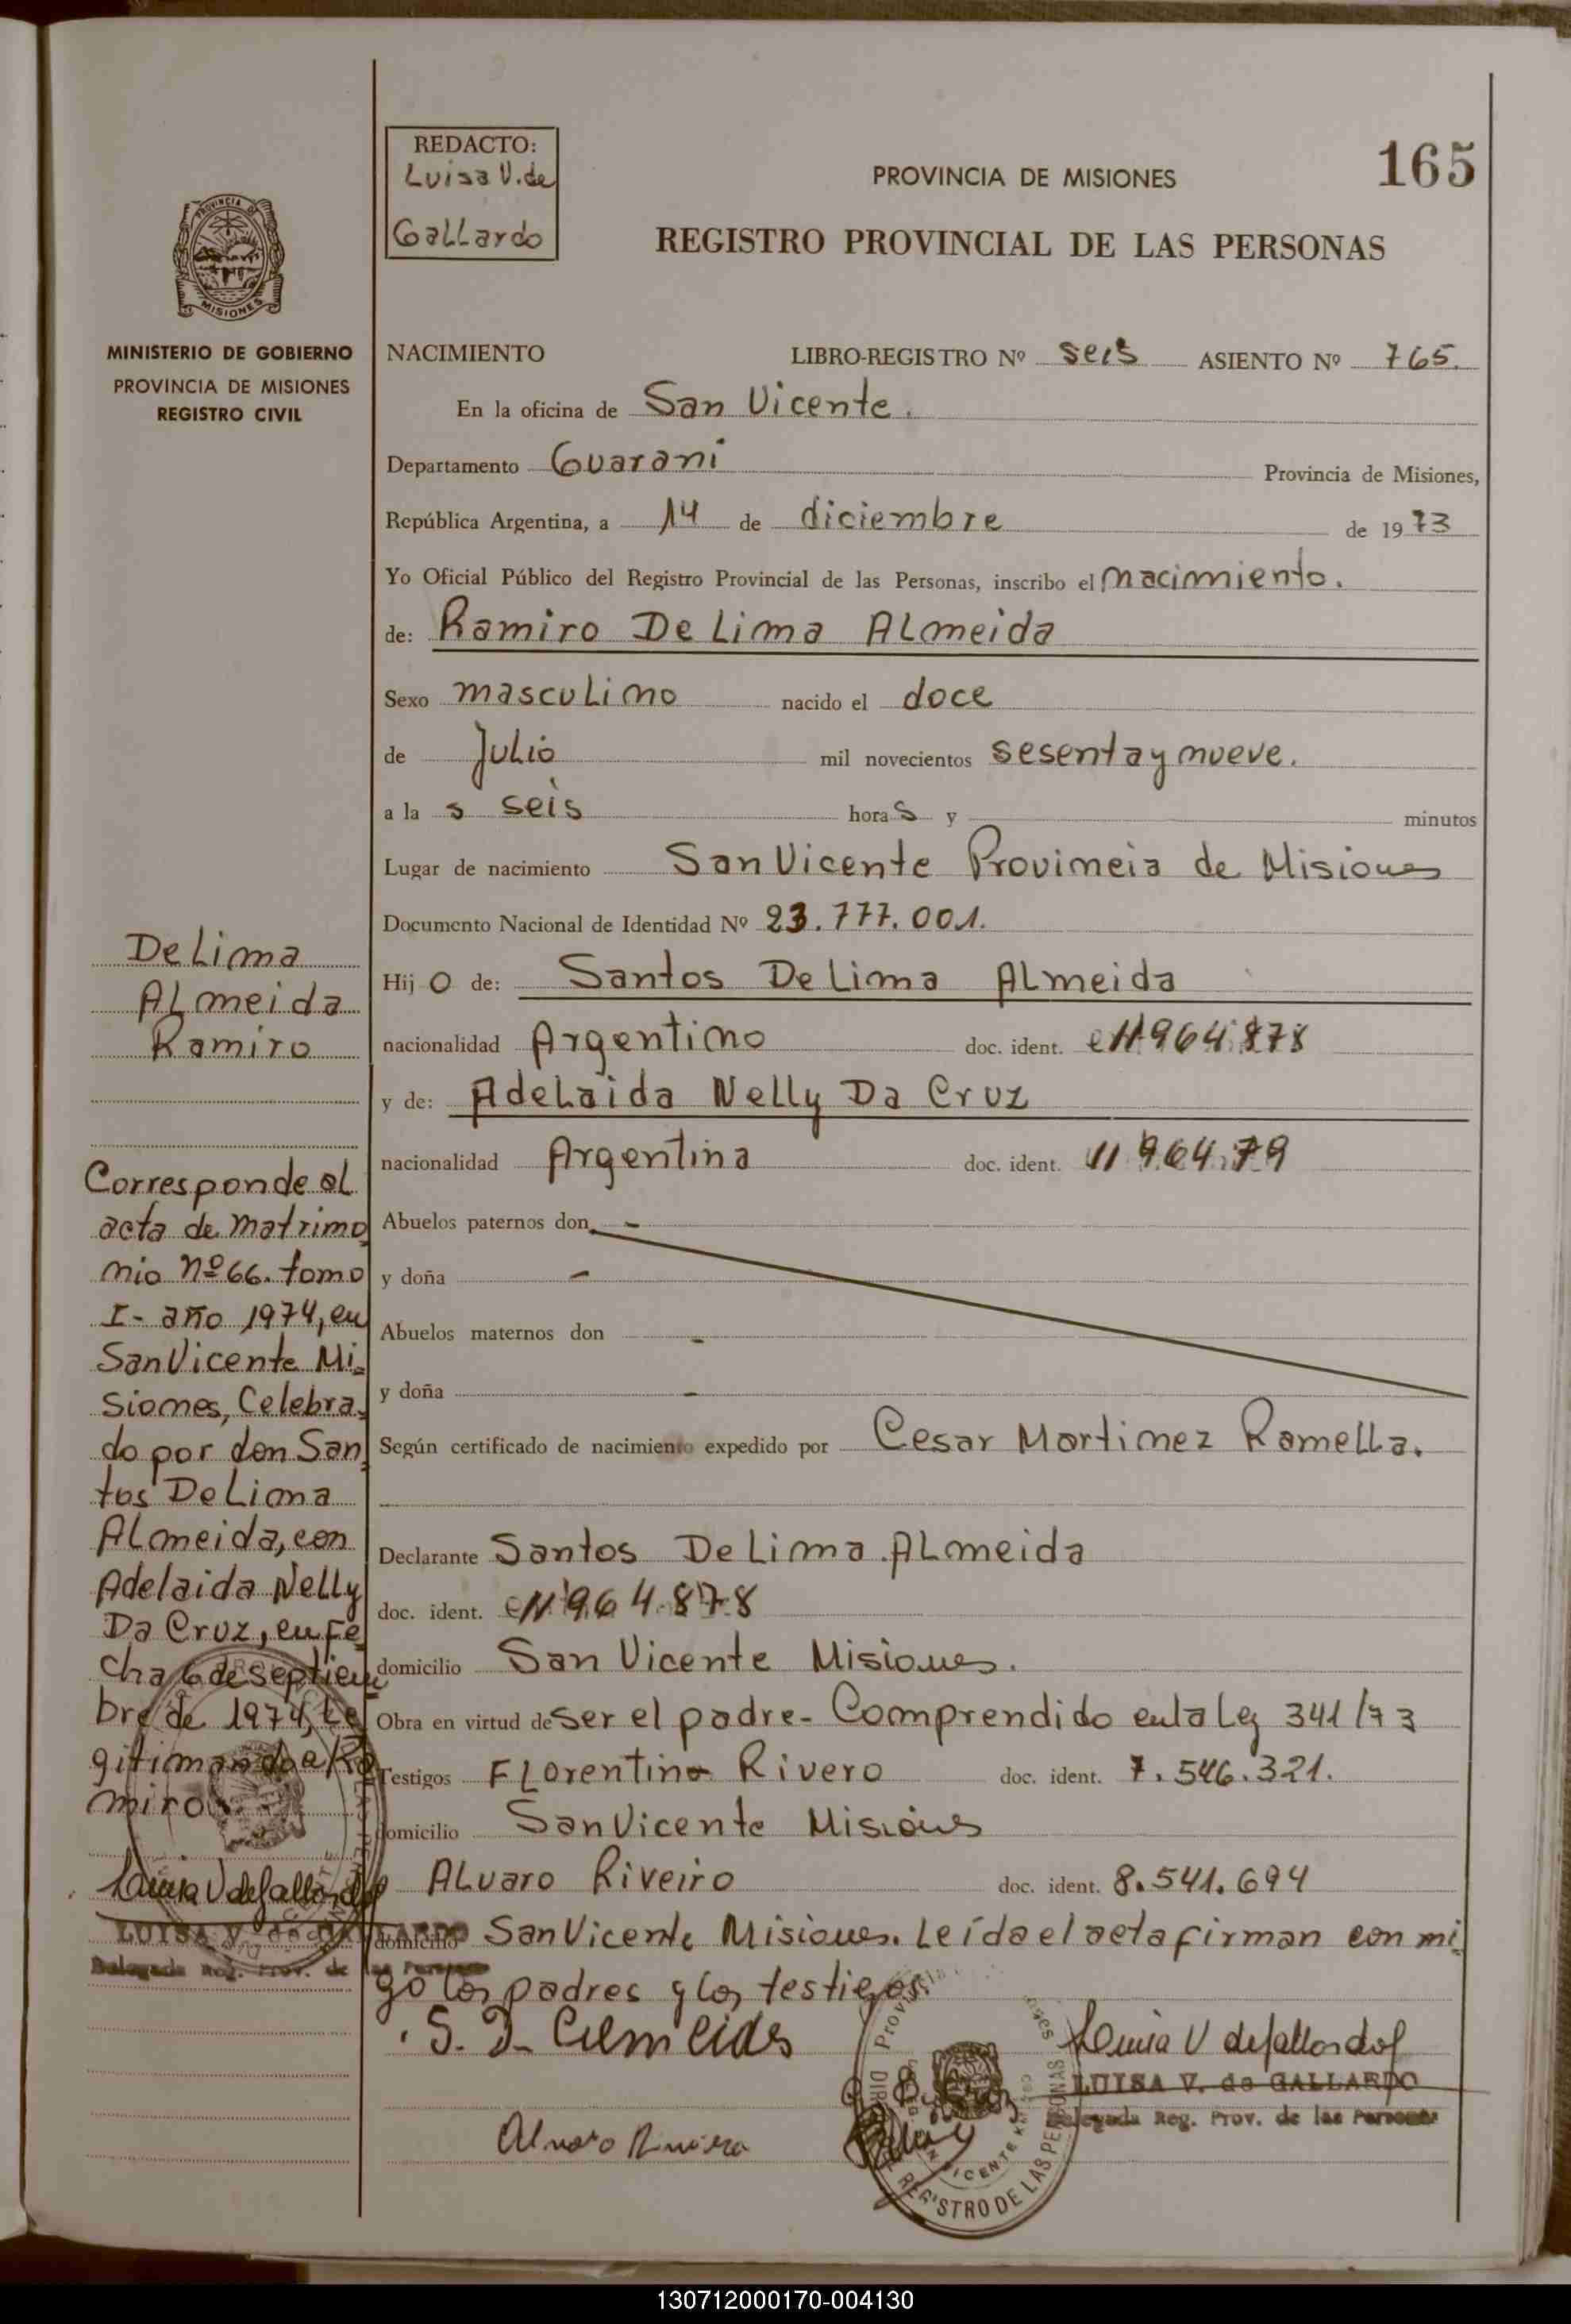 REDACTO:
Luisa V. de
Gallardo
165
PROVINCIA DE MISIONES
REGISTRO PROVINCIAL DE LAS PERSONAS
PROVINCIA DE
MISIONES
MINISTERIO DE GOBIERNO
PROVINCIA DE MISIONES
REGISTRO CIVIL
NACIMIENTO LIBRO-REGISTRO Nº seis ASIENTO Nº 765.
En la oficina de San Vicente.
Departamento Guarani Provincia de Misiones,
República Argentina, a 14 de diciembre de 1973
Yo Oficial Público del Registro Provincial de las Personas, inscribo el nacimiento.
de: Ramiro De Lima Almeida
Sexo masculino nacido el doce
de Julio mil novecientos sesenta y nueve.
a la s seis hora s y minutos
Lugar de nacimiento San Vicente Provincia de Misiones
Documento Nacional de Identidad Nº 23.777.001.
Hij o de: Santos De Lima Almeida
nacionalidad Argentino doc. ident. 11964878
y de: Adelaida Nelly Da Cruz
nacionalidad Argentina doc. ident.
Abuelos paternos don -
y doña -
Abuelos maternos don -
y doña -
Según certificado de nacimiento expedido por Cesar Martinez Ramella.
Declarante Santos De Lima Almeida
doc. ident. 11964878
domicilio San Vicente Misiones.
Obra en virtud de ser el padre - Comprendido en la Ley 341/73
Testigos Florentino Rivero doc. ident. 7.546.321.
domicilio San Vicente Misiones
Alvaro Riveiro doc. ident. 8.541.694
domicilio San Vicente Misiones. Leída el acta firman con mi
go los padres y los testigos.
De Lima
Almeida
Ramiro
Corresponde al
acta de matrimo
nio nº 66. tomo
I - año 1974, en
San Vicente Mi=
siones, Celebra=
do por don San=
tos De Lima
Almeida, con
Adelaida Nelly
Da Cruz, en fe=
cha 6 de septiem
bre de 1974, Le
gitimando a Ra
miro.
Luisa V de Gallardo
LUISA V. de GALLARDO
Delegada Reg. Prov. de las Personas
S. D. Almeida
Alvaro Riveiro
Luisa V de Gallardo
LUISA V. de GALLARDO
Delegada Reg. Prov. de las Personas
REGISTRO DE LAS PERSONAS
130712000170-004130